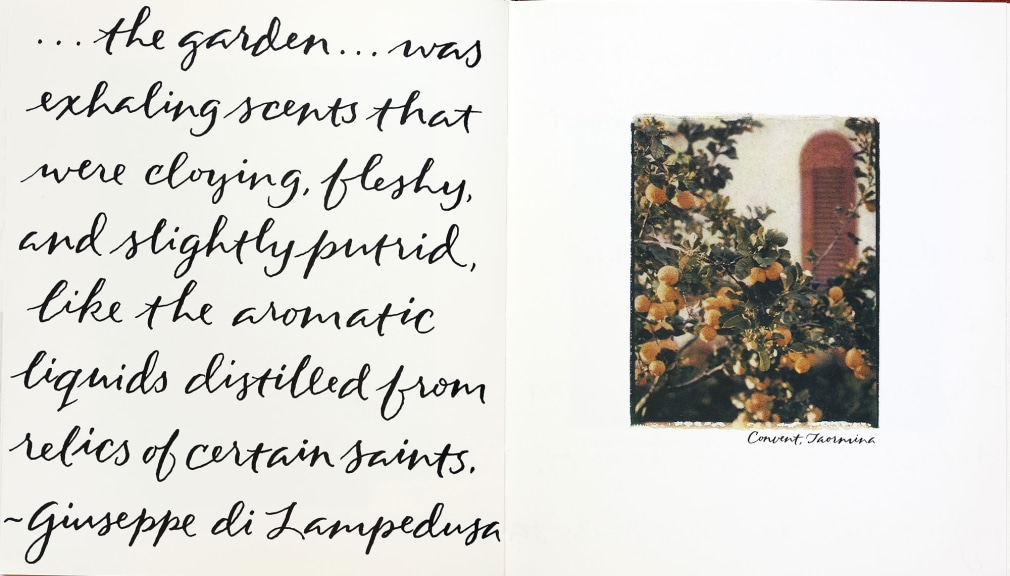 ... the garden... was
exhaling scents that
were cloying, fleshy,
and slightly putrid,
like the aromatic
liquids distilled from
relics of certain saints.
~Giuseppe di Lampedusa
Convent, Taormina